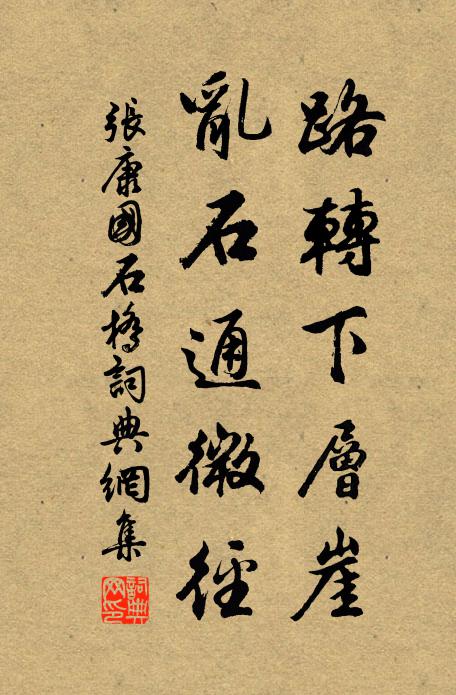 路轉下層崖
亂石通微徑
張康國石橋詞典網集
詞典
网印